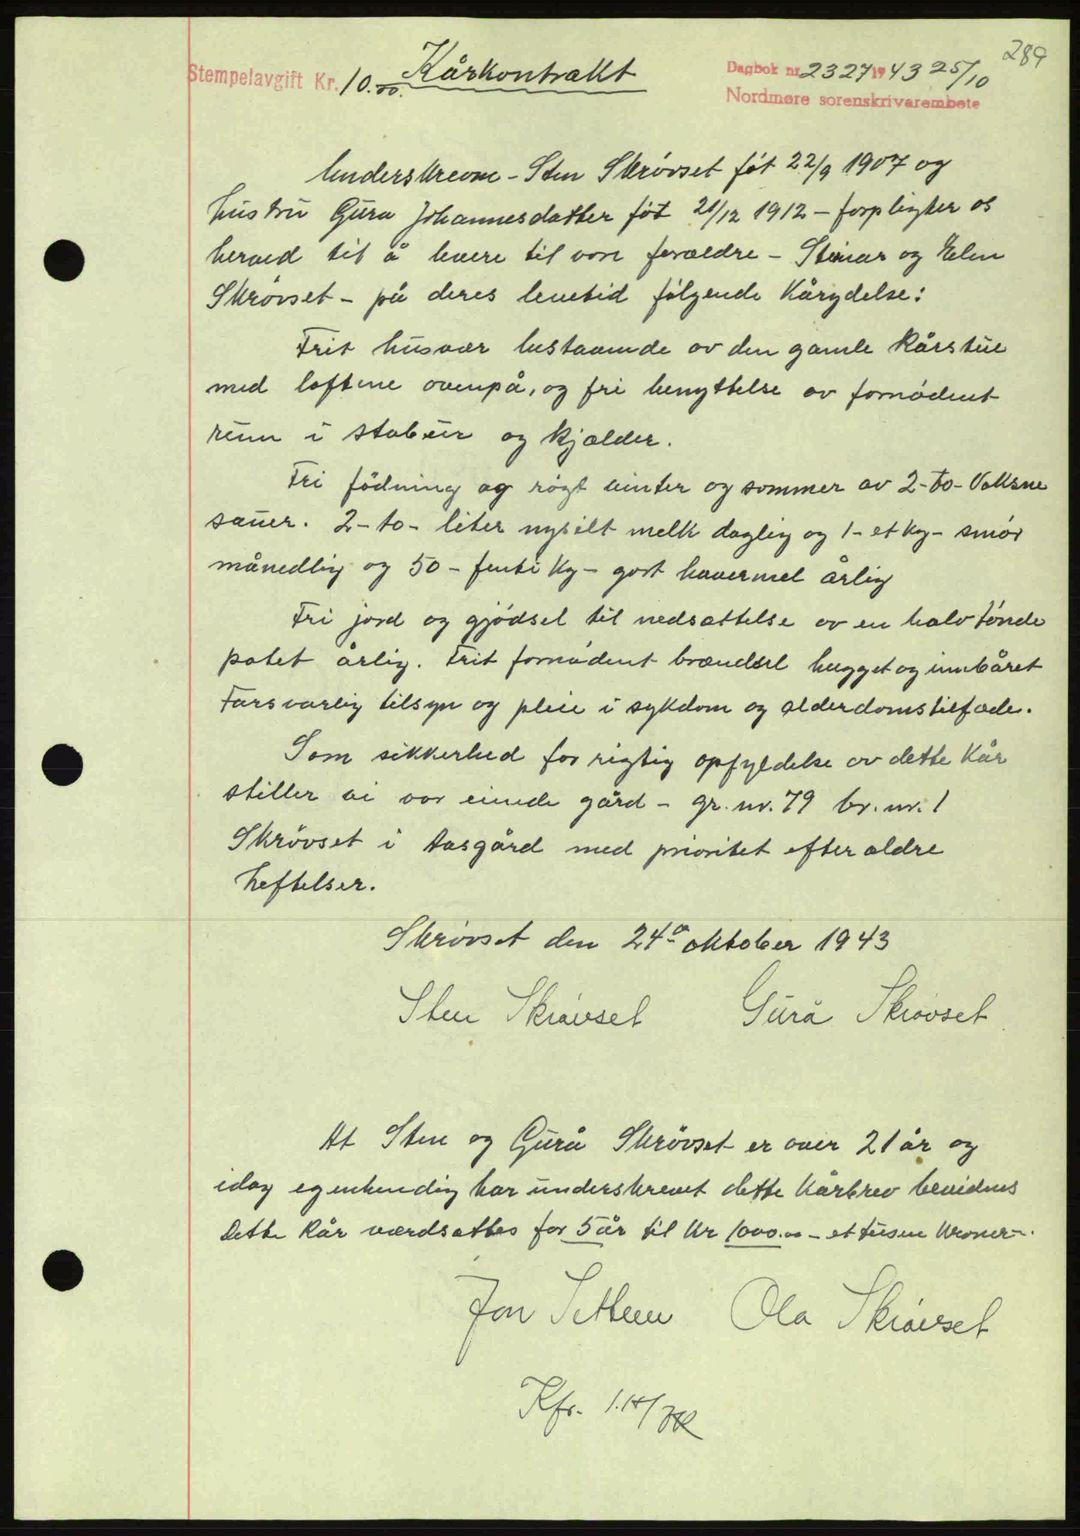 289
Stempelavgift Kr. 10.00. Kårkontrakt
Dagbok nr. 2327 1943 25/10
Nordmøre sorenskrivarembete
Underskrevne - Sten Skrøvset føt 22/9 1907 og
hustru Gura Johannesdatter føt 21/12 1912 - forpligter os
herved til å levere til vore forældre - Steinar og Elen
Skrøvset - på deres levetid følgende Kårydelse:
Frit husvær bestaaende av den gamle Kårstue
med loftene ovenpå, og fri benyttelse av fornødent
rum i stabur og kjælder.
Fri fødning og røgt vinter og sommer av 2-to- Voksne
sauer. 2-to- liter nysilt melk daglig og 1-et kg- smør
månedlig og 50 - femti kg- godt havremel årlig
Fri jord og gjødsel til nedsættelse av en halv tønde
potet årlig. Frit fornødent brændsel hugget og innbåret
Forsvarlig tilsyn og pleie i sykdom og alderdomstilfæde.
Som sikkerhed for rigtig opfyldelse av dette Kår
stiller vi vor eiende gård - gr. nr. 79 br. nr. 1
Skrøvset i Aasgård med prioritet efter ældre
heftelser.
Skrøvset den 24de oktober 1943
Sten Skrøvset Gurå Skrøvset
At Sten og Gurå Skrøvset er over 21 år og
idag egenhendig har underskrevet dette Kårbrev bevidnes
Dette Kår værdsættes for 5 år til Kr 1000.00 - et tusen Kroner-.
Jon Settem Ola Skrøvset
Kfr.